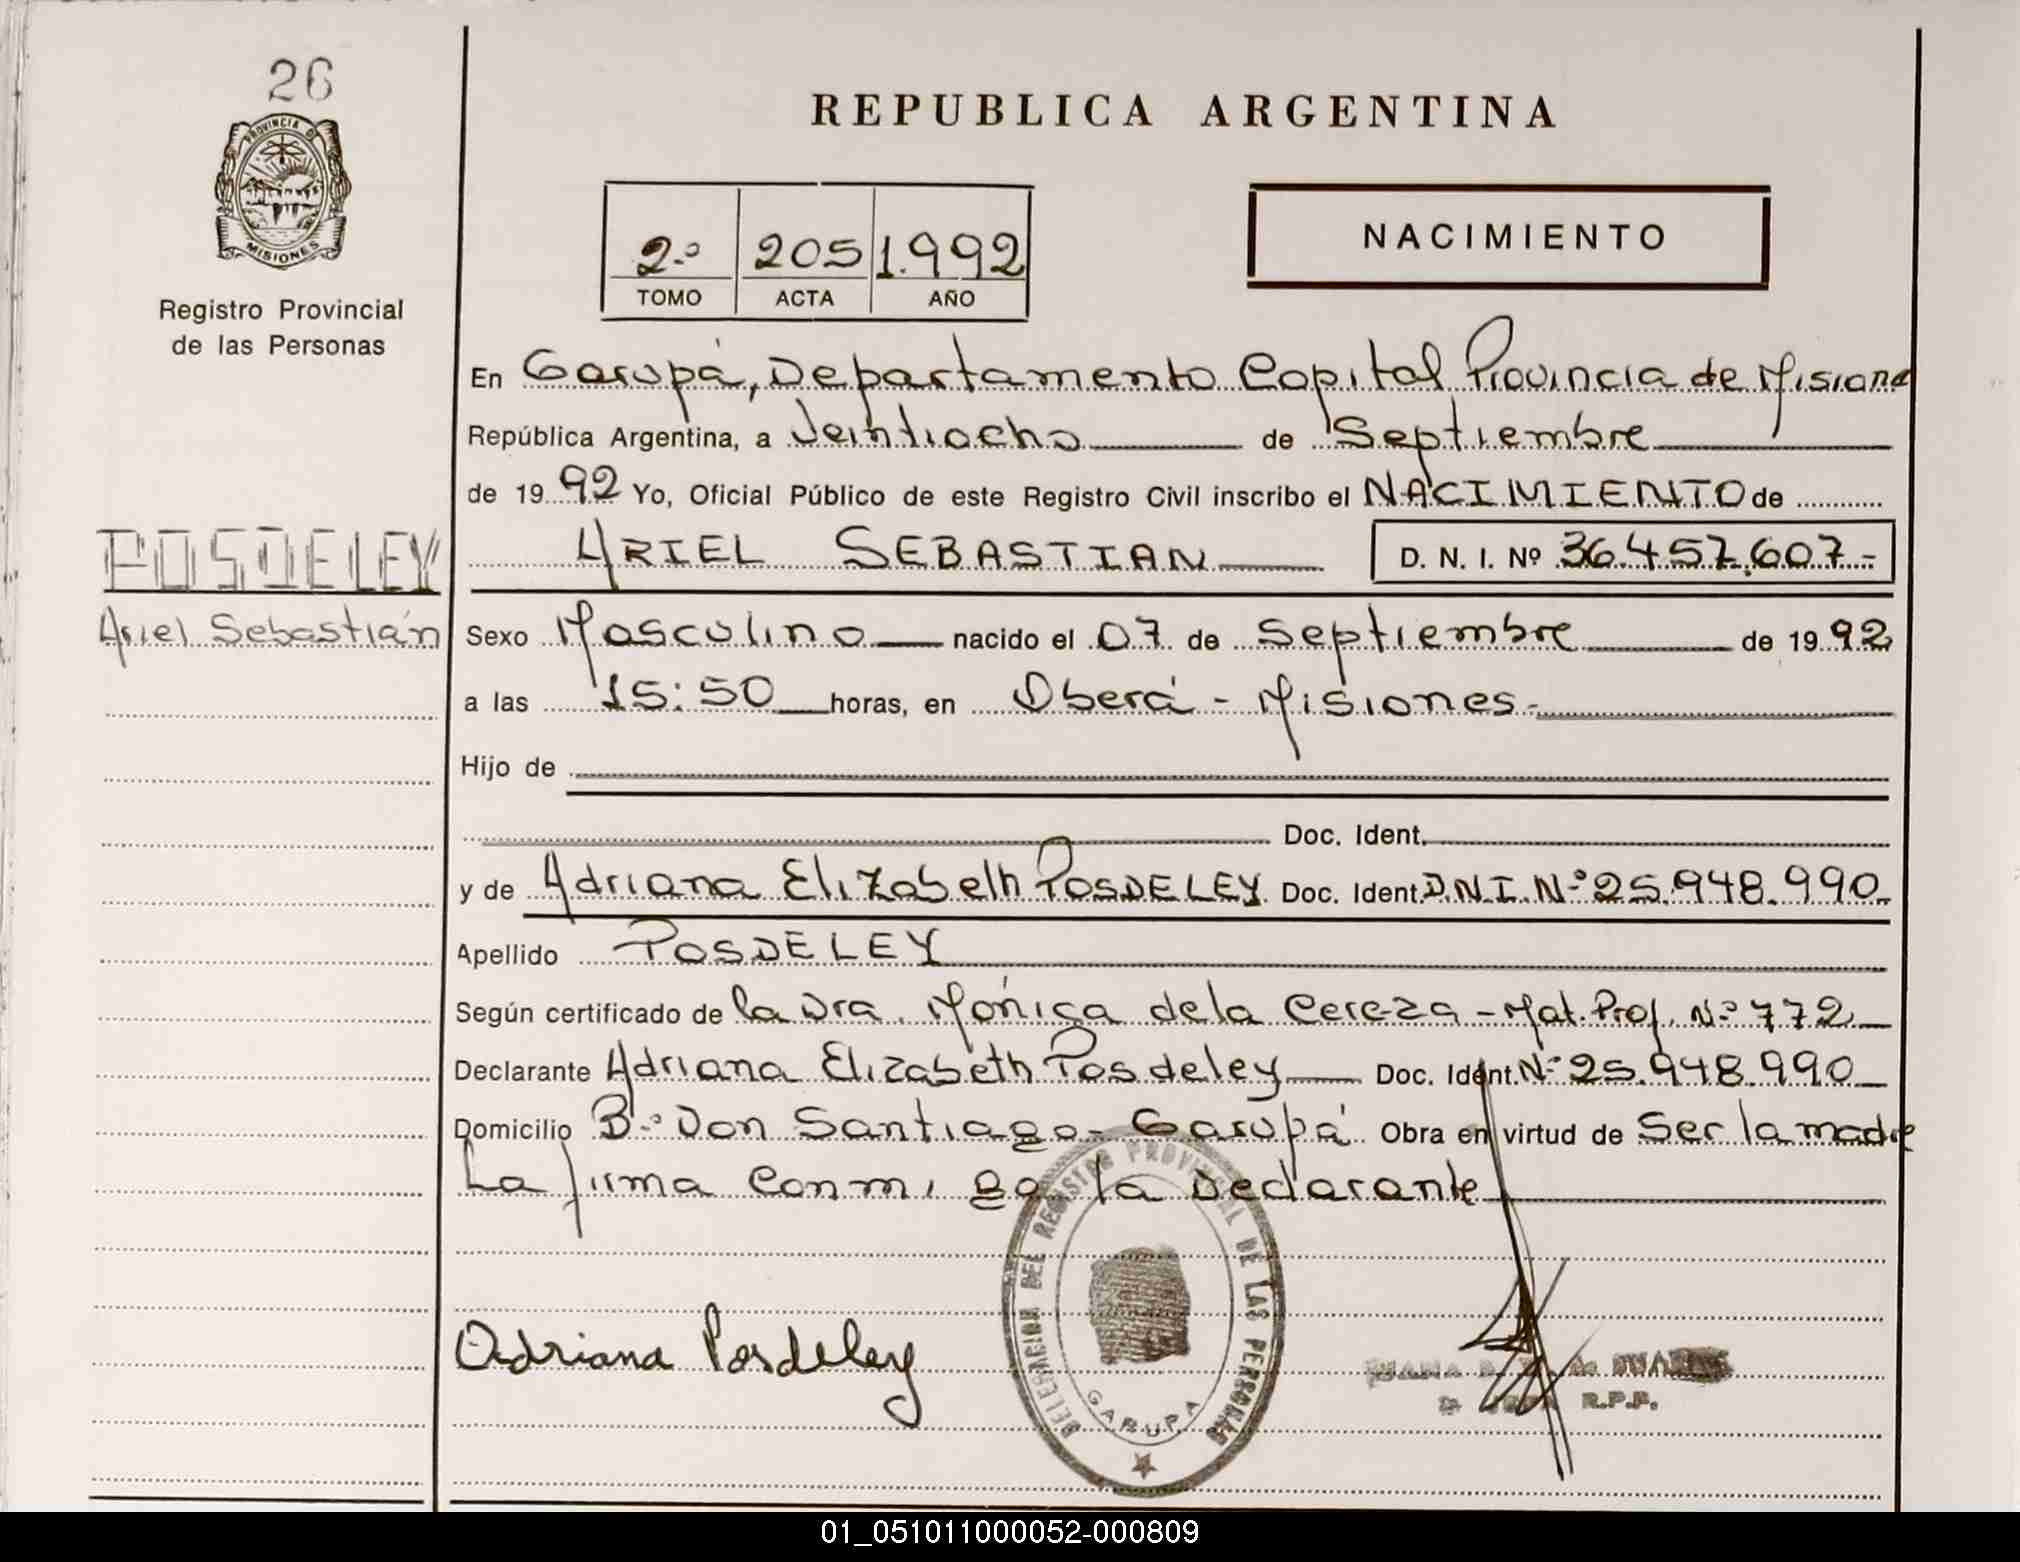 26
PROVINCIA D
MISIONES
Registro Provincial
de las Personas
POSDELEY
Ariel Sebastián
REPUBLICA ARGENTINA
2º 205 1.992
TOMO ACTA AÑO
NACIMIENTO
En Garupá, Departamento Capital Provincia de Misiones
República Argentina, a Veintiocho de Septiembre
de 1992 Yo, Oficial Público de este Registro Civil inscribo el NACIMIENTO de
ARIEL SEBASTIAN D. N. I. Nº 36.457.607.-
Sexo Masculino nacido el 07 de Septiembre de 1992
a las 15:50 horas, en Oberá - Misiones.-
Hijo de
Doc. Ident.
y de Adriana Elizabeth POSDELEY Doc. Ident. D.N.I. Nº 25.948.990.
Apellido POSDELEY
Según certificado de la Dra. Mónica de la Cereza - Mat. Prof. Nº 772
Declarante Adriana Elizabeth Posdeley Doc. Ident. Nº 25.948.990
Domicilio Bº Don Santiago - Garupá Obra en virtud de Ser la madre
La firma conmigo la Declarante
DELEGACION DEL REGISTRO PROVINCIAL DE LAS PERSONAS
GARUPA
Adriana Posdeley
R.P.P.
01_051011000052-000809